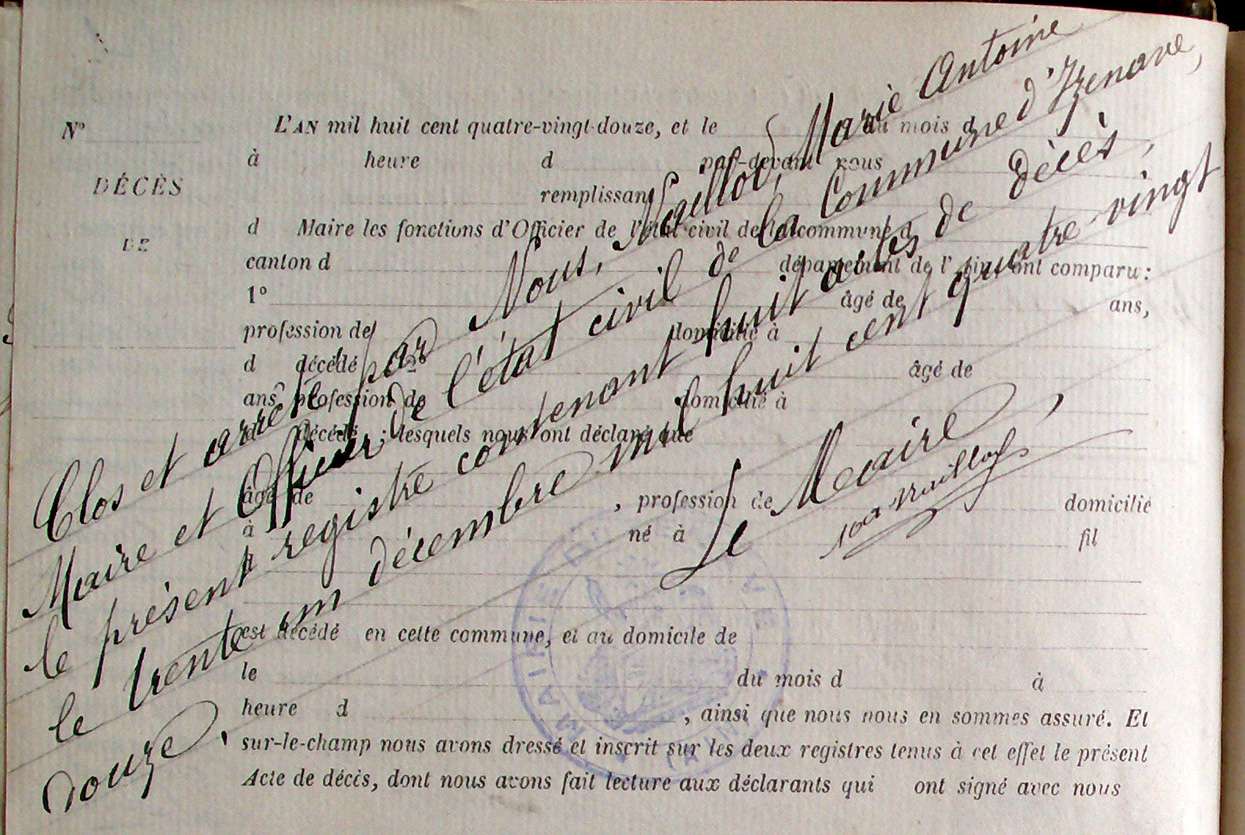 N°
DÉCÈS
DE
L'AN mil huit cent quatre-vingt-douze, et le du mois d
à heure d par-devant nous
remplissant
d Maire les fonctions d'Officier de l'état civil de la commune d
canton d département de l'Ain, ont comparu :
1° âgé de ans,
profession de domicilié à
d décédé 2° âgé de
ans, profession de domicilié à
décédé ; lesquels nous ont déclaré que
âgé de , profession de domicilié
à né à fil
est décédé en cette commune, et au domicile de
le du mois d à
heure d , ainsi que nous nous en sommes assuré. Et
sur-le-champ nous avons dressé et inscrit sur les deux registres tenus à cet effet le présent
Acte de décès, dont nous avons fait lecture aux déclarants qui ont signé avec nous
Clos et arrêté par Nous, Marie Antoine
Maire et Officier de l'état civil de la Commune d'Izenave,
le présent registre contenant huit actes de décès,
le trente un décembre mil huit cent quatre-vingt
douze.
Le Maire,
MAIRIE
(AIN)